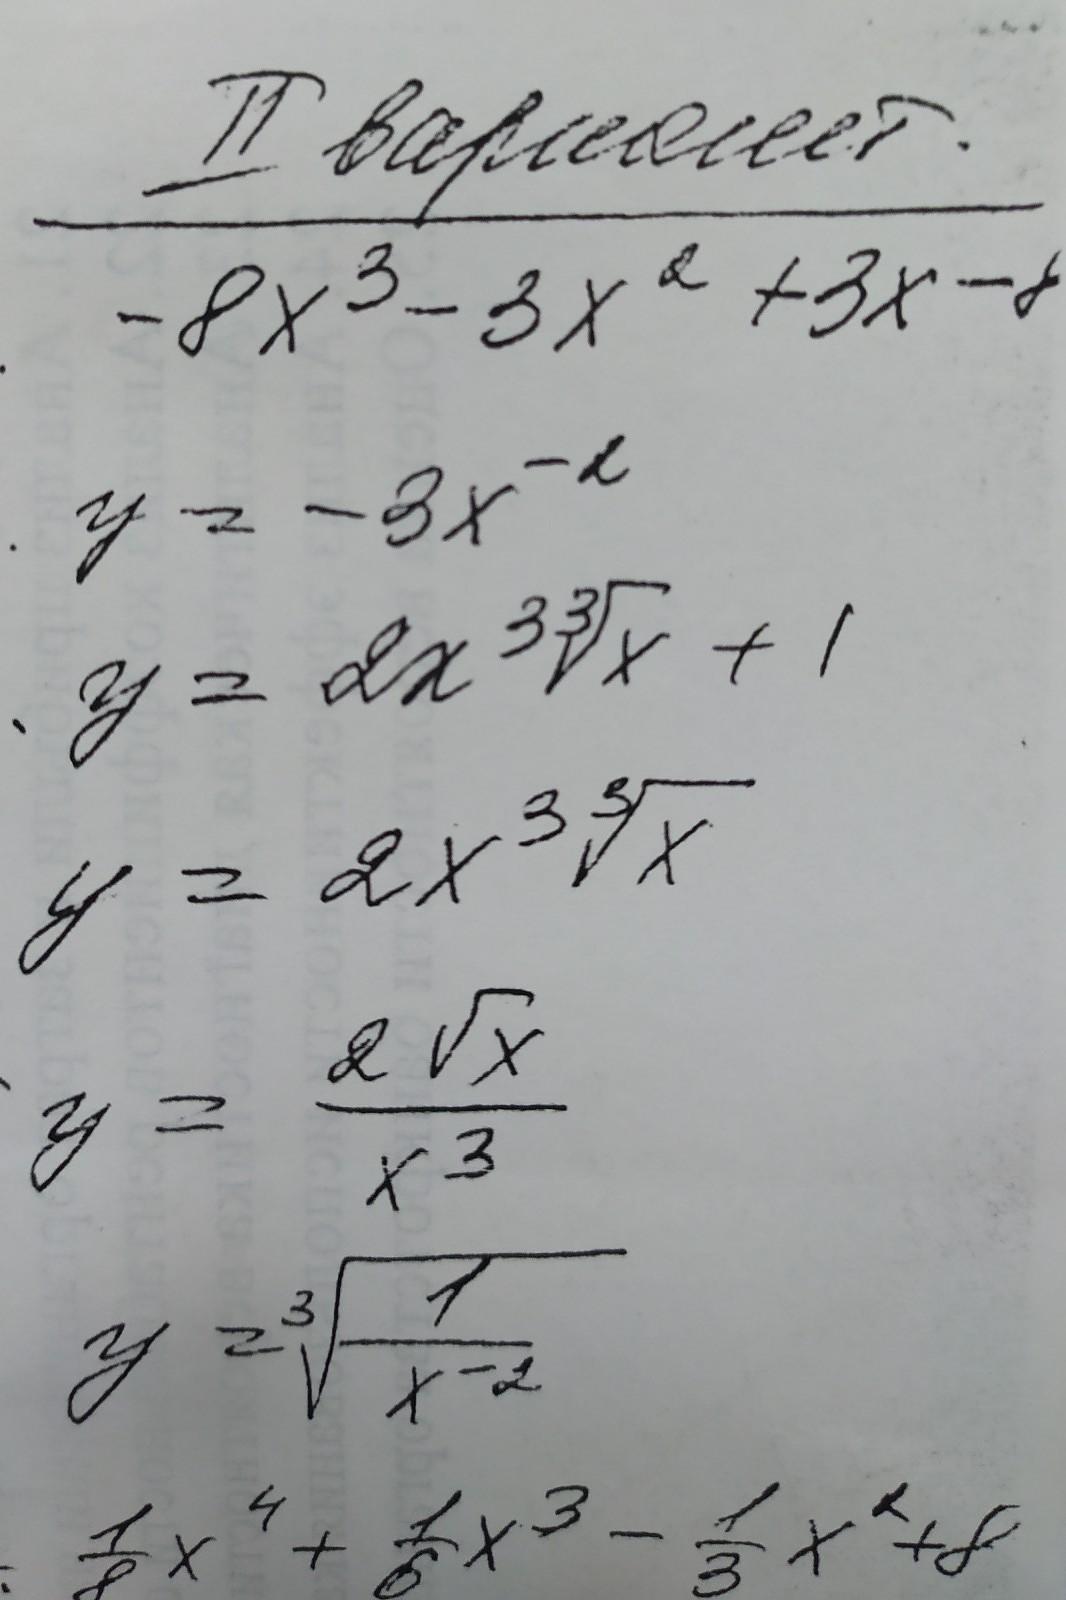 II вариант.
-8x³ - 3x² + 3x - 8
y = -3x⁻²
y = 2x³ ∛x + 1
y = 2x³ ∛x
y = 2√x / x³
y = ∛(1 / x⁻²)
1/8 x⁴ + 1/6 x³ - 1/3 x² + 8